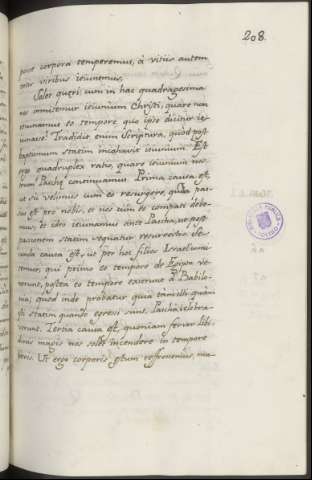 208.
pore corpora temperemus, à vitiis autem
totis viribus ieiunemus.
Solet quęri, cum in hac quadragesima
nos omnitemur ieiunium Christi, quare non
ieiunamus eo tempore quo ipse dicitur ie-
iunasse? Tradidit enim Scriptura, quod post
baptismum statim inchoavit ieiunium. Est
ergo quadruplex ratio, quare ieiunium nos-
trum Paschę continuamus. Prima causa est,
ut si volumus cum eo resurgere, quia pas-
sus est pro nobis, et nos cum eo compati debe-
mus. Et ideo ieiunamus ante Pascha, ut post
passionem statim sequatur resurrectio. Se-
cunda causa est, ut per hoc filios Israel imi-
temur, qui primo eo tempore de Egipto ve-
nerunt, postea eo tempore exierunt à Babilo-
nia, quod inde probatur quia tam illi quàm
isti statim quando egressi sunt, Pascha celebra-
verunt. Tertia causa est, quoniam fervor libi-
dinis magis nos solet incendere in tempore
veris. Ut ergo corporis ęstum refrenemus, ma-